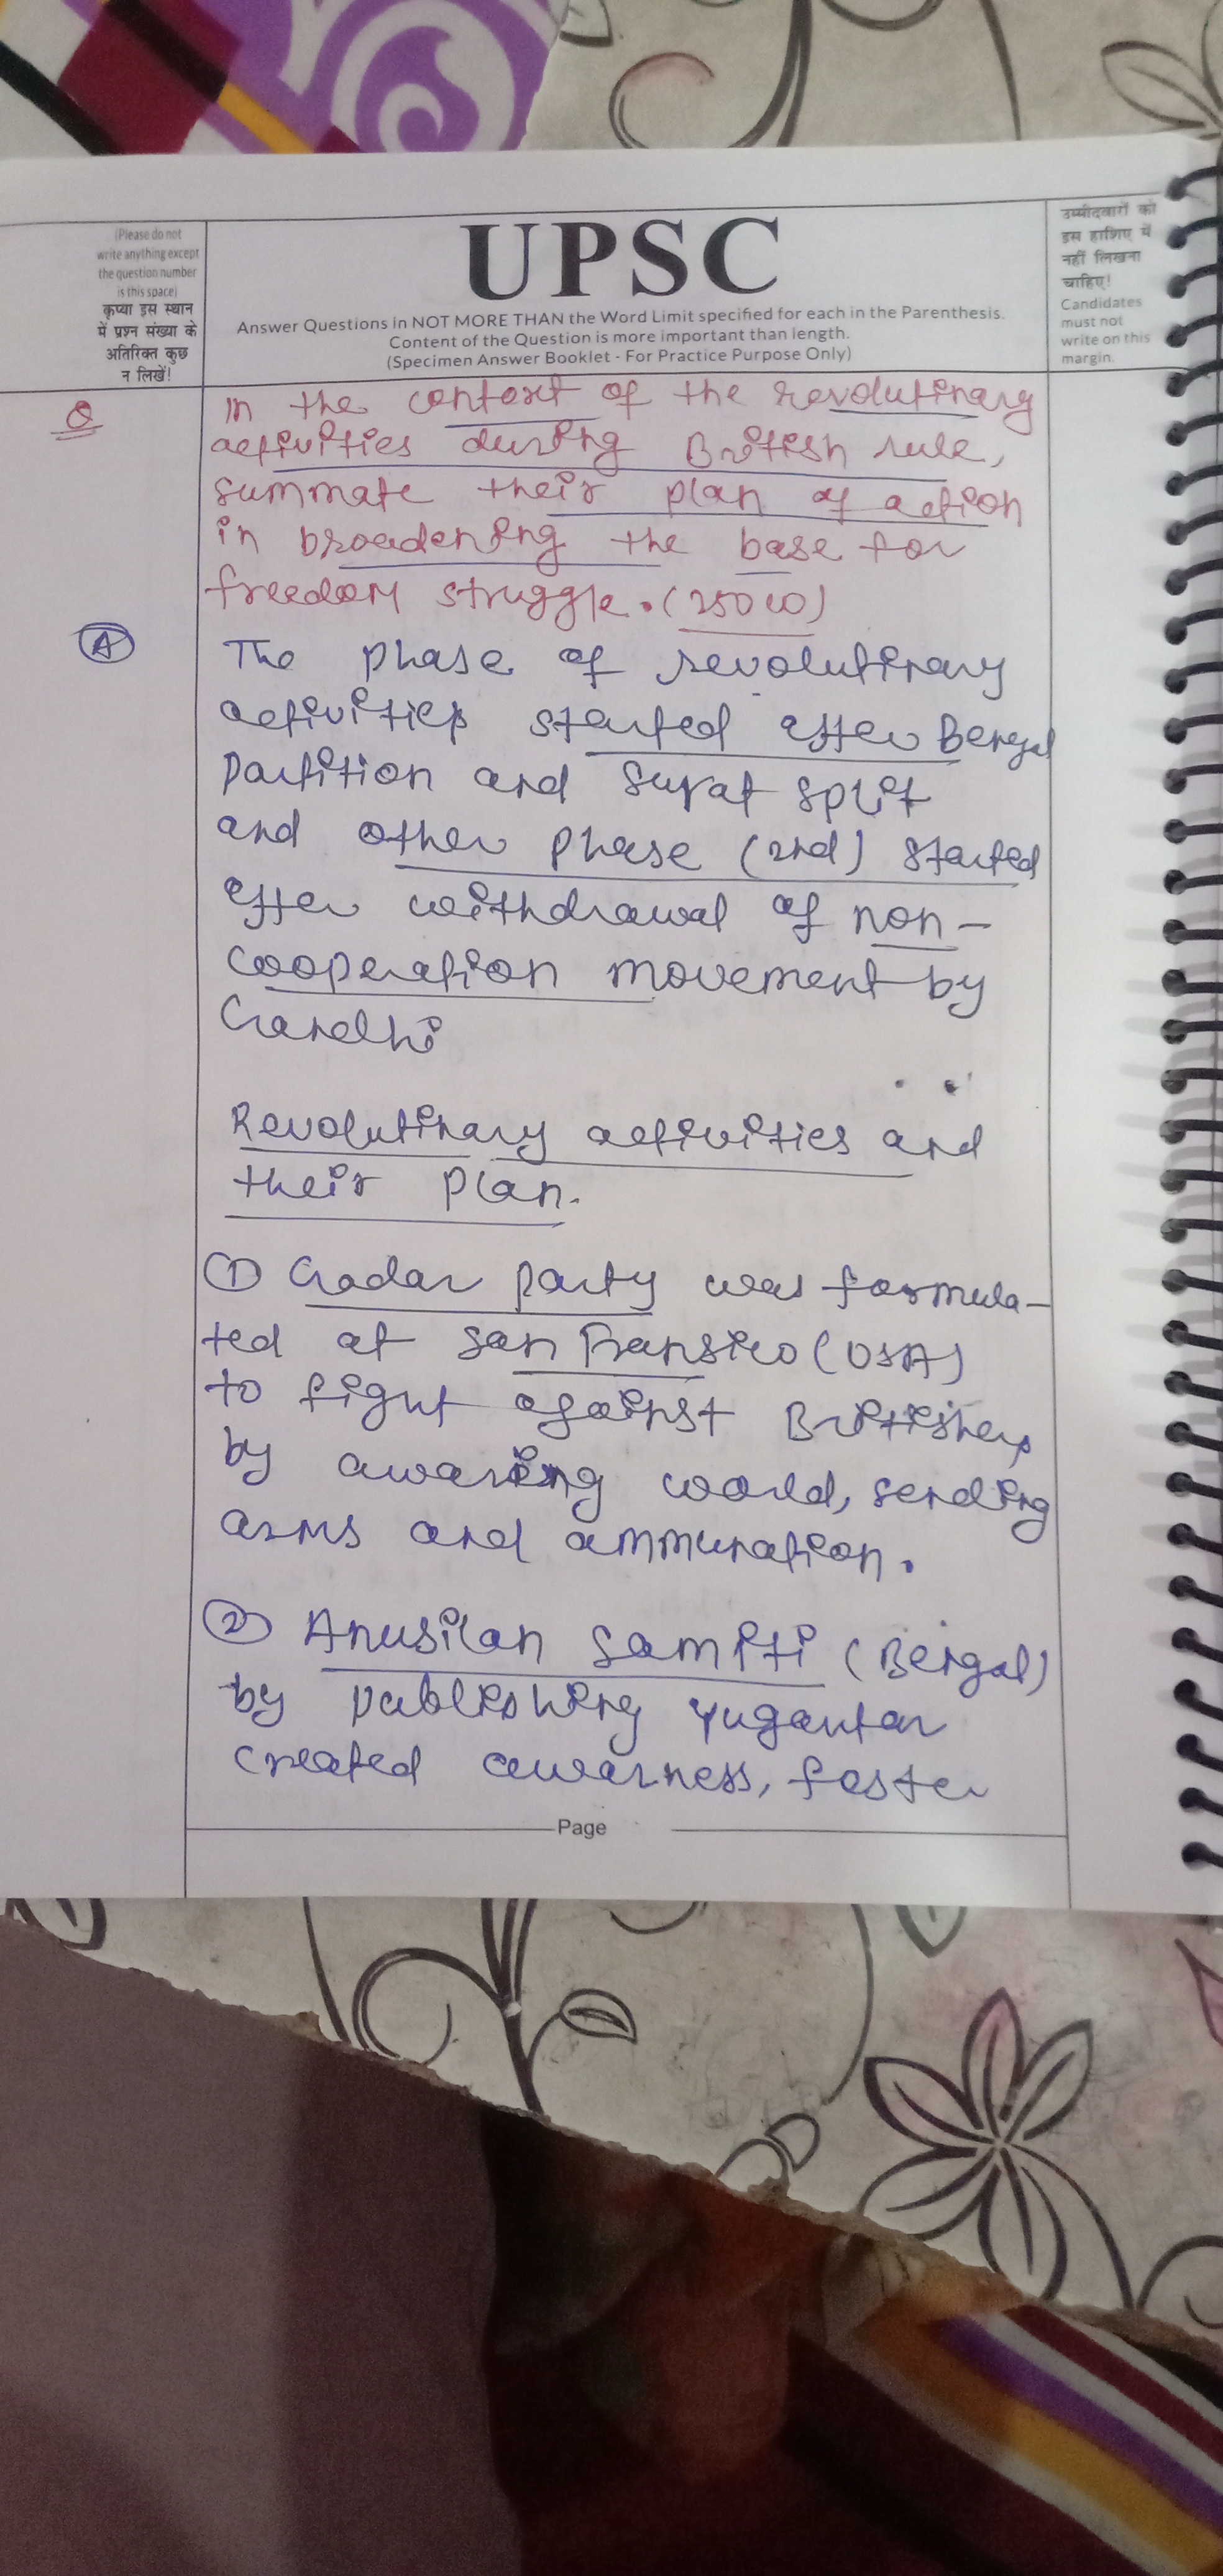 (Please do not
write anything except
the question number
is this space)
कृप्या इस स्थान
में प्रश्न संख्या के
अतिरिक्त कुछ
न लिखें!
UPSC
Answer Questions in NOT MORE THAN the Word Limit specified for each in the Parenthesis.
Content of the Question is more important than length.
(Specimen Answer Booklet - For Practice Purpose Only)
उम्मीदवारों को
इस हाशिए में
नहीं लिखना
चाहिए!
Candidates
must not
write on this
margin.
Q
In the context of the revolutinary
activities during British rule,
summate their plan of action
in broadening the base for
freedom struggle. (250 W)
A
The phase of revolutinary
activities started after Bengal
Partition and Surat split
and other phase (2nd) started
after withdrawal of non-
cooperation movement by
Gandhi
Revolutinary activities and
their plan.
① Gadar party was formula-
ted at San Fransico (USA)
to fight against Britishers
by awaring world, sending
arms and ammunation.
② Anusilan samiti (Bengal)
by publishing Yugantar
created awarness, foster
Page